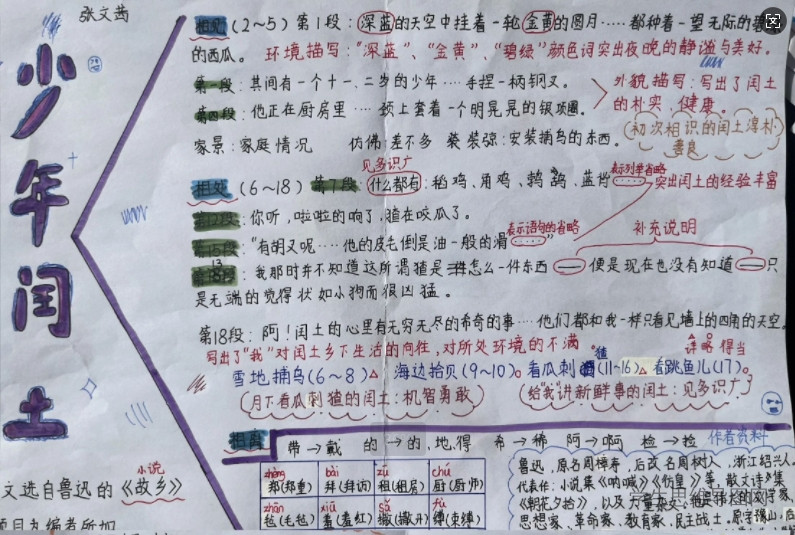 张文茜
少年闰土
相见 (2~5) 第1段：深蓝的天空中挂着一轮金黄的圆月……都种着一望无际的碧绿
的西瓜。 环境描写："深蓝"、"金黄"、"碧绿"颜色词突出夜晚的静谧与美好。
第一段：其间有一个十一、二岁的少年……手捏一柄钢叉。
外貌描写：写出了闰土
的朴实、健康。
第四段：他正在厨房里……颈上套着一个明晃晃的银项圈。
(初次相识的闰土淳朴
善良)
家景：家庭情况 仿佛：差不多 装弶：安装捕鸟的东西。
见多识广
相处 (6~18) 第7段：什么都有：稻鸡、角鸡、鹁鸪、蓝背…… 表示列举省略 突出闰土的经验丰富
第12段：你听，啦啦的响了，猹在咬瓜了。
第15段 "有胡叉呢……他的皮毛倒是油一般的滑……" 表示语句的省略
补充说明
13
我那时并不知道这所谓猹是怎么一件东西——便是现在也没有知道——只
是无端的觉得状如小狗而很凶猛。
第18段：阿！闰土的心里有无穷无尽的希奇的事……他们都和我一样只看见墙上的四角的天空。
写出了"我"对闰土乡下生活的向往，对所处环境的不满。 详略得当
雪地捕鸟(6~8)△ 海边拾贝(9~10)。看瓜刺猹(11~16)△ 看跳鱼儿(17)。
(月下看瓜刺猹的闰土：机智勇敢) (给"我"讲新鲜事的闰土：见多识广)
带→戴 的→的、地、得 希→稀 阿→啊 检→捡 作者资料
zhèng bài zū chú
郑(郑重) 拜(拜访) 租(租房) 厨(厨师)
zhān xiū sǎ fù
毡(毡毛) 羞(羞红) 撒(撒开) 缚(束缚)
鲁迅，原名周樟寿，后改名周树人，浙江绍兴人。
代表作：小说集《呐喊》《彷徨》等，散文诗集
《朝花夕拾》，以及大量杂文，他是伟大的文学家、
思想家、革命家、教育家、民主战士。原字豫山，后
小说
文选自鲁迅的《故乡》
题目为编者所加